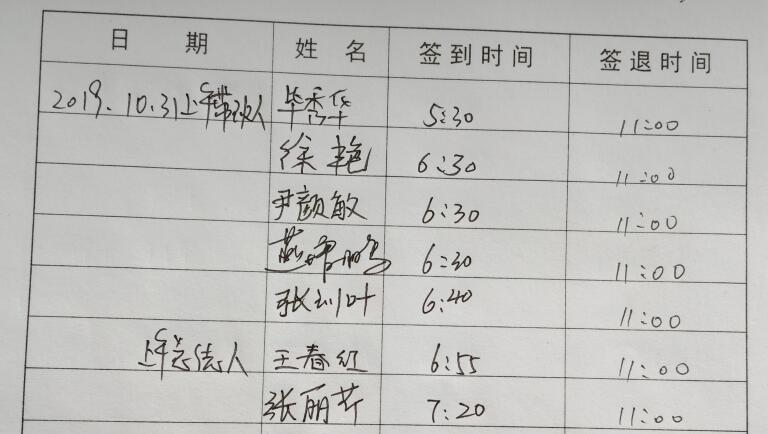 日 期 姓 名 签到时间 签退时间
2019.10.31上午带队人 毕秀华 5:30 11:00
徐艳 6:30 11:00
尹颜敏 6:30 11:00
6:30 11:00
张 叶 6:40 11:00
上午志愿人 王春红 6:55 11:00
张丽芹 7:20 11:00